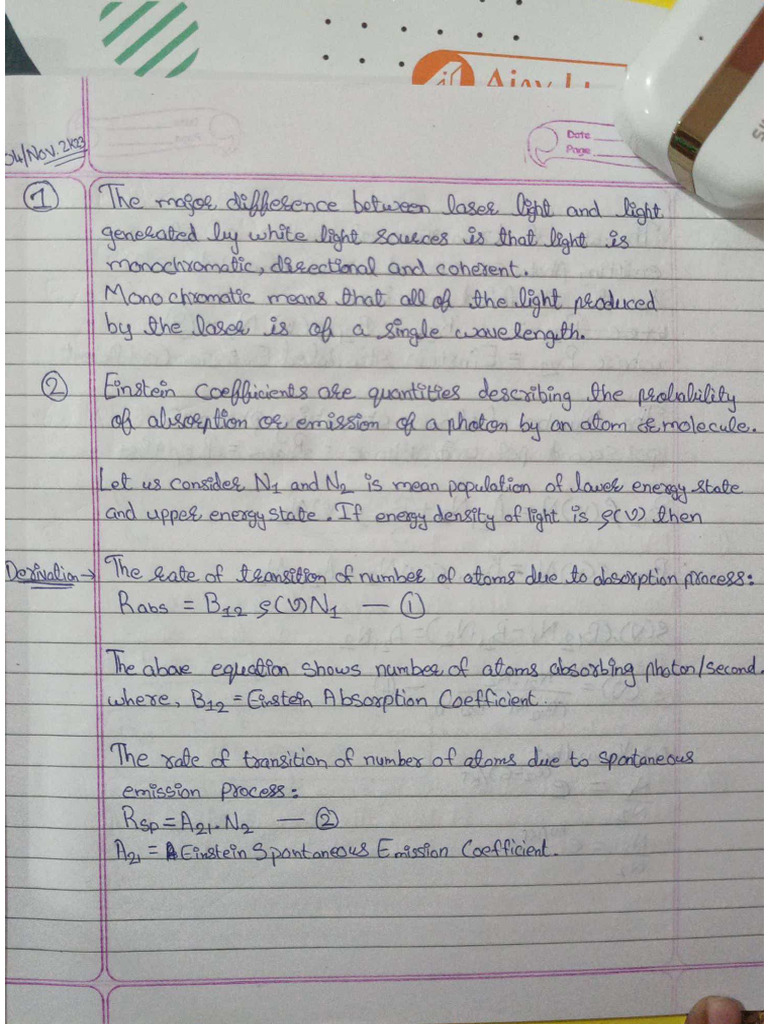 Ajay
04/Nov.2K23
Date
Page
① The major difference between laser light and light
generated by white light sources is that light is
monochromatic, directional and coherent.
Mono chromatic means that all of the light produced
by the laser is of a single wavelength.
② Einstein coefficients are quantities describing the probability
of absorption or emission of a photon by an atom or molecule.
Let us consider N₁ and N₂ is mean population of lower energy state
and upper energy state. If energy density of light is ρ(ν) then
Derivation → The rate of transition of number of atoms due to absorption process:
Rabs = B₁₂ ρ(ν)N₁ — ①
The above equation shows number of atoms absorbing photon/second.
where, B₁₂ = Einstein Absorption Coefficient.
The rate of transition of number of atoms due to spontaneous
emission process:
Rsp = A₂₁. N₂ — ②
A₂₁ = Einstein Spontaneous Emission Coefficient.